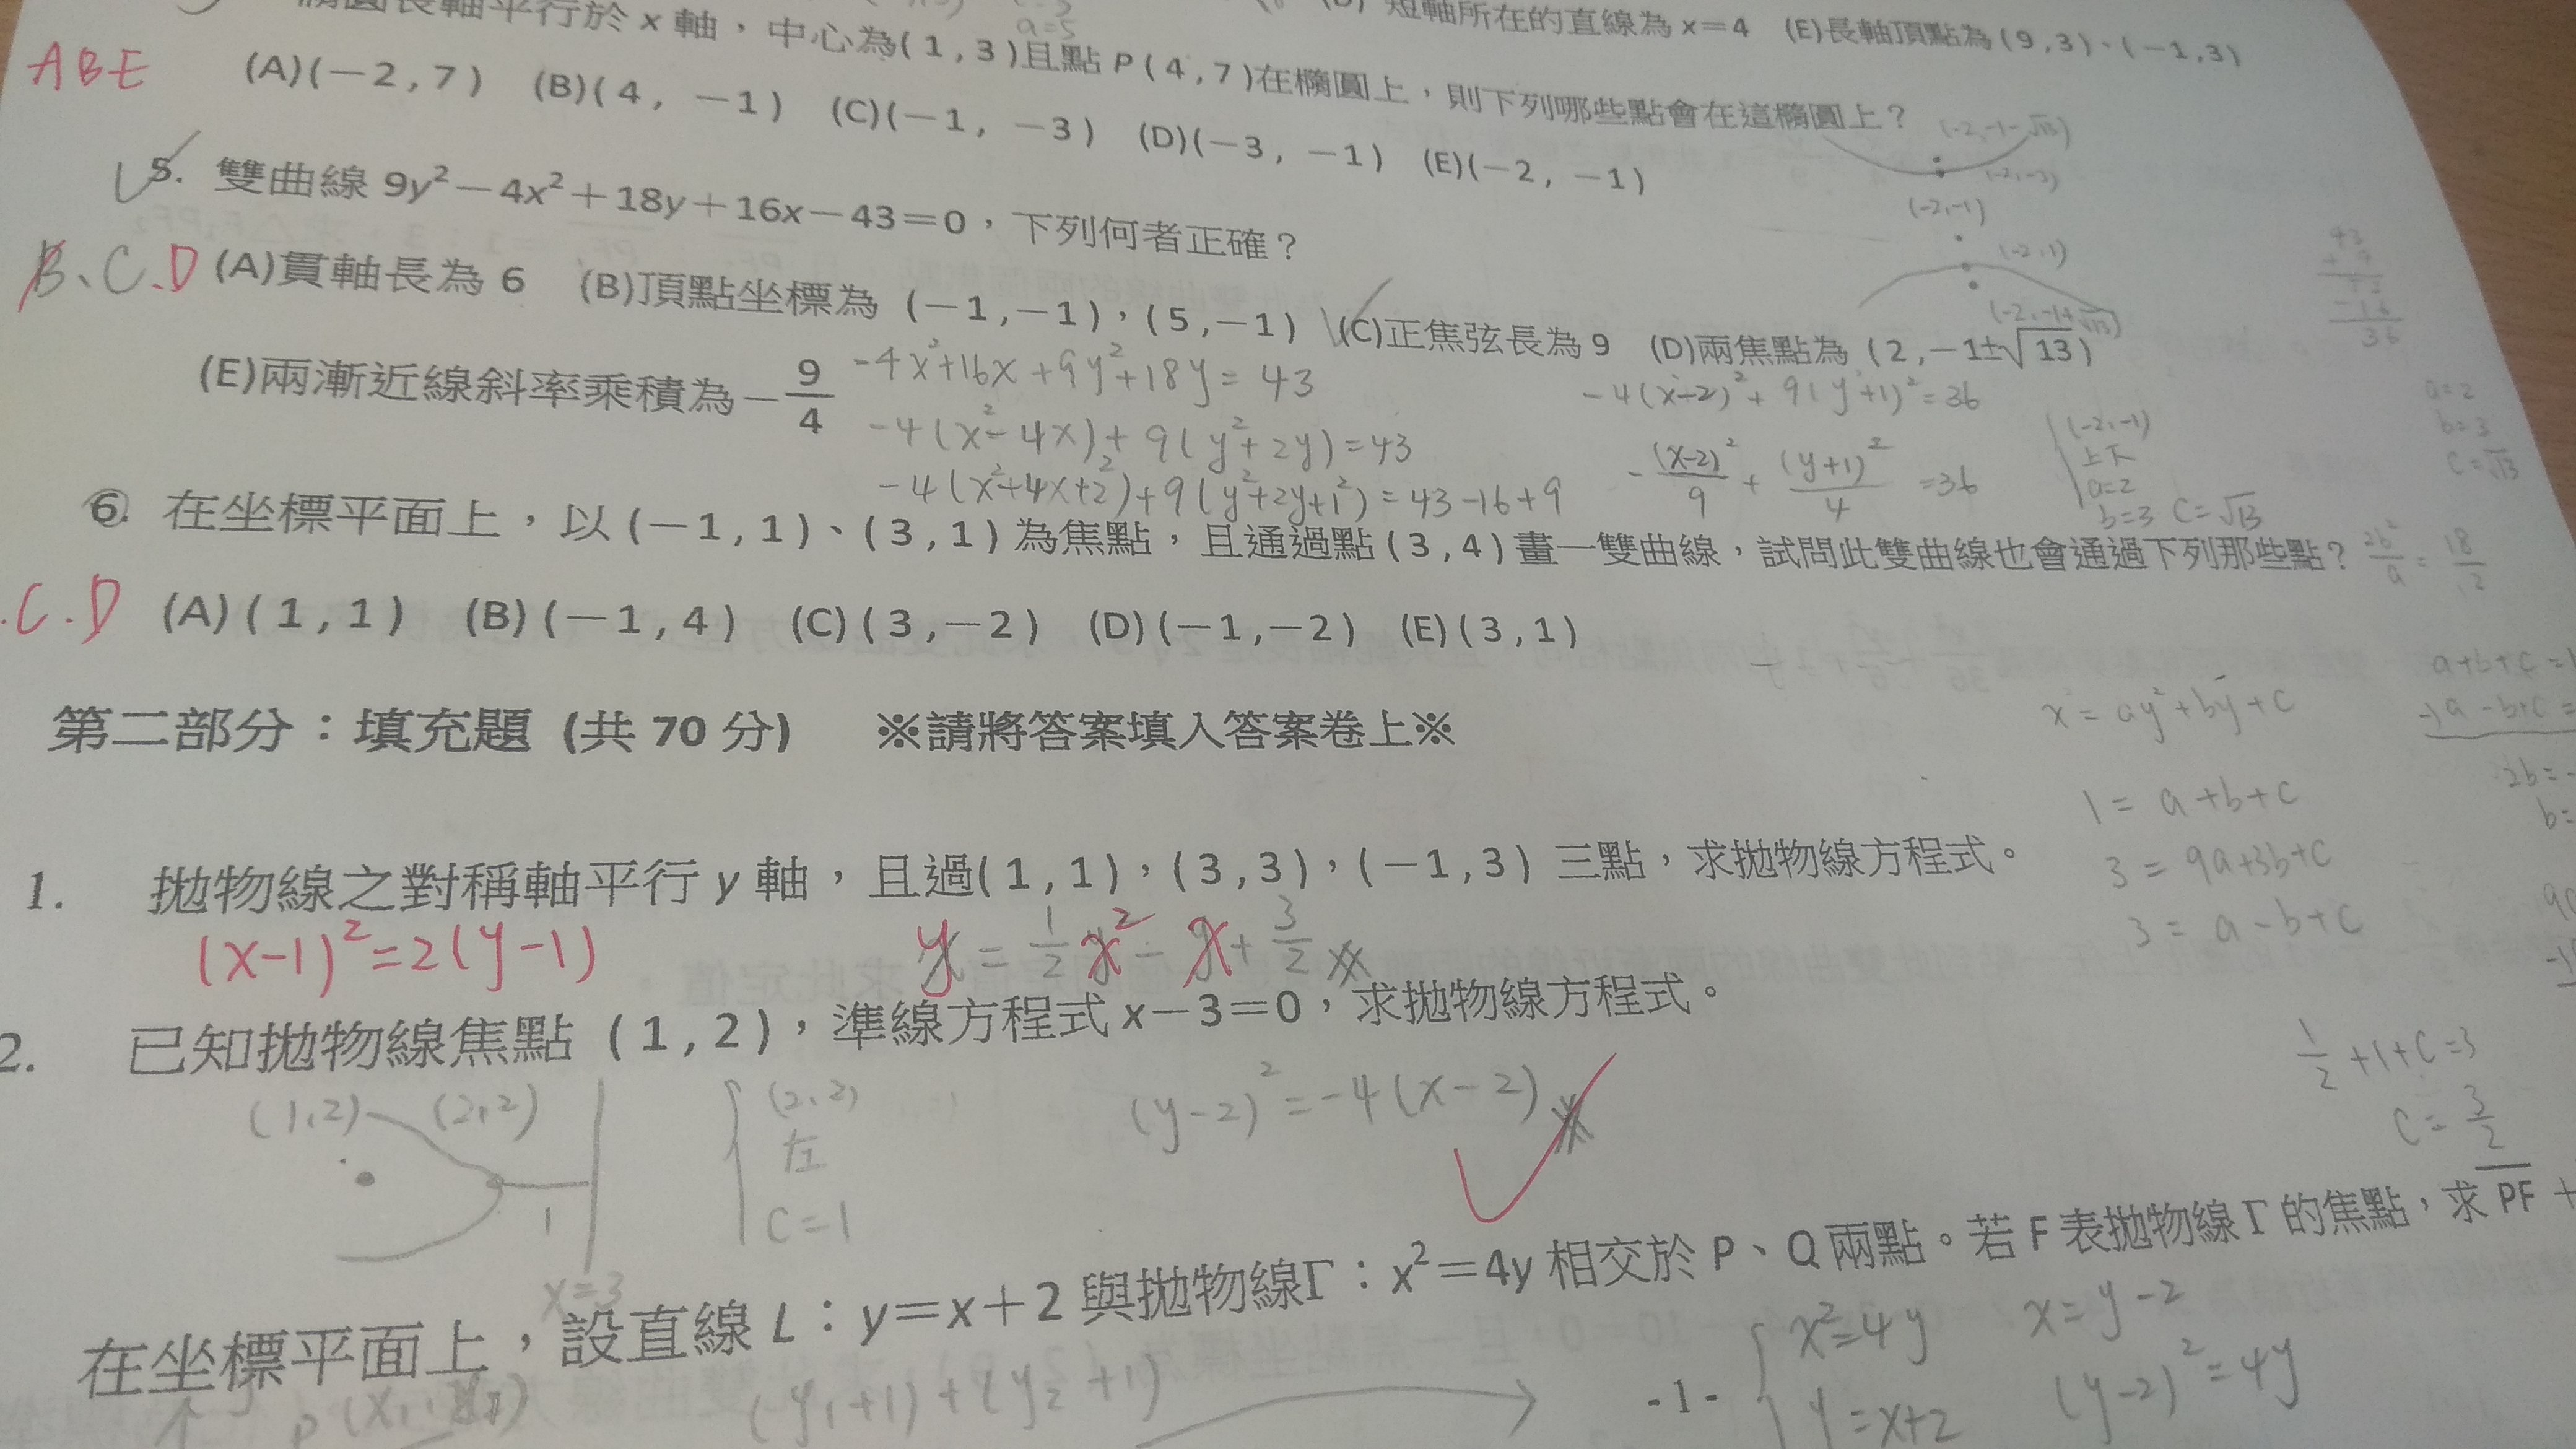 短軸所在的直線為 x=4 (E)長軸頂點為(9,3)、(-1,3)
橢圓長軸平行於 x 軸，中心為(1,3)且點 P(4,7)在橢圓上，則下列哪些點會在這橢圓上？
a=5
ABE (A)(-2,7) (B)(4, -1) (C)(-1, -3) (D)(-3, -1) (E)(-2, -1)
5. 雙曲線 9y²-4x²+18y+16x-43=0，下列何者正確？
B、C.D (A)貫軸長為 6 (B)頂點坐標為 (-1,-1)，(5,-1) (C)正焦弦長為 9 (D)兩焦點為 (2,-1±√13)
(E)兩漸近線斜率乘積為-9/4
-4x²+16x+9y²+18y=43
-4(x²-4x)+9(y²+2y)=43
-4(x²+4x+2²)+9(y²+2y+1²)=43-16+9
-4(x-2)²+9(y+1)²=36
-(x-2)²/9+(y+1)²/4=36
(-2,-1-√13)
(-2,-3)
(-2,-1)
(-2,1)
(-2,-1+√13)
(-2,-1)
上下
a=2
b=3 c=√13
a=2
b=3
c=√13
6. 在坐標平面上，以(-1,1)、(3,1)為焦點，且通過點(3,4)畫一雙曲線，試問此雙曲線也會通過下列那些點？
2b²/a=18/2
.C.D (A)(1,1) (B)(-1,4) (C)(3,-2) (D)(-1,-2) (E)(3,1)
第二部分：填充題 (共 70 分) ※請將答案填入答案卷上※
x=ay²+by+c
1=a+b+c
3=9a+3b+c
3=a-b+c
1. 拋物線之對稱軸平行 y 軸，且過(1,1)，(3,3)，(-1,3) 三點，求拋物線方程式。
(x-1)²=2(y-1) y=1/2x²-x+3/2
2. 已知拋物線焦點 (1,2)，準線方程式 x-3=0，求拋物線方程式。
1/2+1+c=3
c=3/2
(1,2) (2,2)
1
x=3
(2,2)
左
c=1
(y-2)²=-4(x-2)
在坐標平面上，設直線 L：y=x+2 與拋物線Γ：x²=4y 相交於 P、Q 兩點。若 F 表拋物線 Γ 的焦點，求 PF +
(y₁+1)+(y₂+1)
-1-
x²=4y
y=x+2
x=y-2
(y-2)²=4y